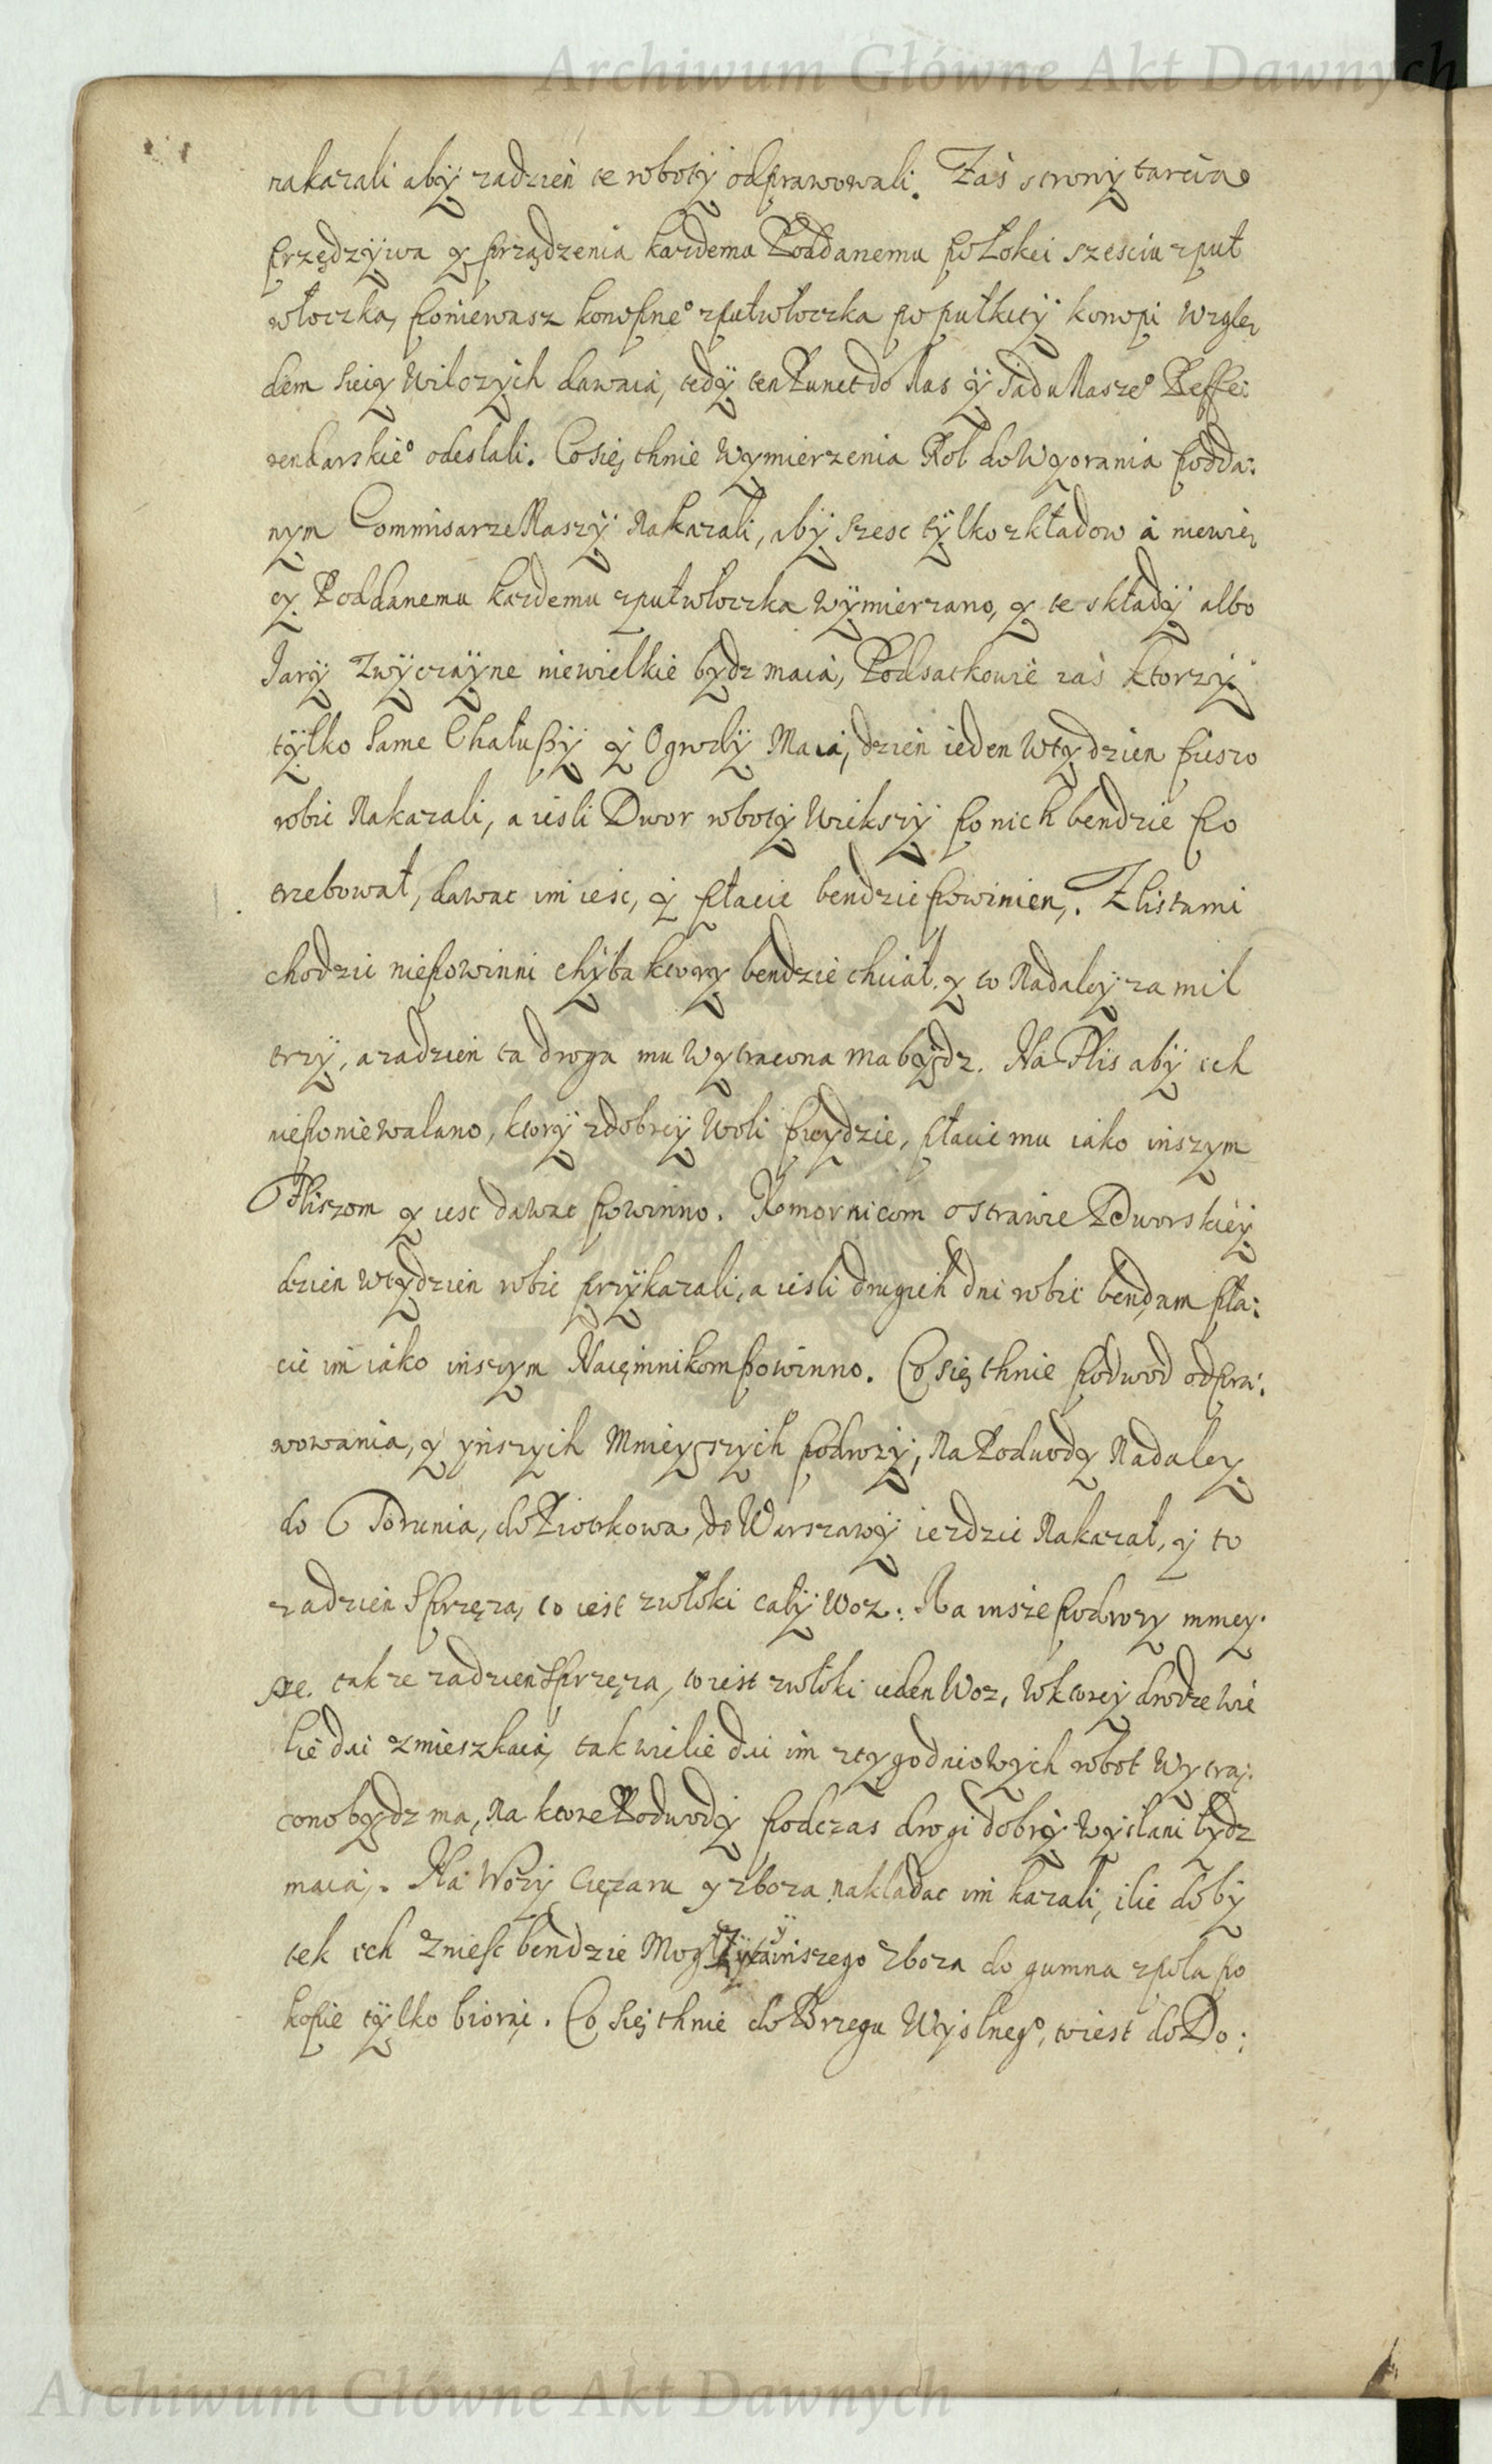 Archiwum Główne Akt Dawnych
nakazali aby zadzień te roboty odprawowali. Zaś strony tarcia
przędzywa y prządzenia kazdemu Poddanemu po Łokci sześciu zpuł
włoczka, poniewasz konopne° zpułwłoczka po pułkity konopi Wzglę,
dem Sieiy Wilczych dawaią, tedy ten Punct do Nas y Sądu Nasze° Reffe:
rendarskie° odesłali. Co się tknie Wymierzenia Rol do Wyorania podda:
nym Commisarze Naszy Nakazali, aby szesc tylko zkładow á niewię,
cy Poddanemu kazdemu zpułwłoczka Wymierzano, y te składy albo
Jary Zwyczayne niewielkie bydz maią, Podsatkowie zaś ktorzy
tylko same Chałupy y Ogrody Maią, dzień ieden Wtydzien pieszo
robic Nakazali, a iesli Dwor roboty Wiekszy po nich bendzie po
trzebował, dawac im iesc, y płacic bendzie powinien,. Z listami
chodzic niepowinni chyba ktory bendzie chciał. y to Nadaley za mil
trzy, a zadzień ta droga mu Wytracona ma bydz. Na Flis aby ich
nieponiewalano, ktory zdobrey Woli puydzie, płacic mu iako inszym
Fliszom y iesc dawac powinno. Komornicom o strawie Dworskiey
dzien Wtydzien robic przykazali, a iesli drugich dni robic bendą im pła:
cic im iako inszym Naięmnikom powinno. Co się tknie podwod odpra:
wowania, y ynszych Mnieyszych podrozy, Na Podwody Nadaley
do Torunia, do Piotrkowa, do Warszawy iezdzic Nakazał, y to
zadzień Spręza, to iest zwłoki cały Woz. Na insze podrozy mniey.
sze. takze zadzień Spręza, to iest zwłoki ieden Woz, Wktorey drodze wie
lie dni zmieszkaią, tak wielie dni im ztygodniowych robot Wytra,.
cono bydz ma, na ktore Podwody podczas drogi dobry wysłani bydz
maią. Na Wozy Cięzaru y zboza nakładac im kazali, ilie doby
tek ich zniesc bendzie Mogł inszego zboza do gumna zpola po
kopie tylko biorą. Co się tknie do Brzegu Wyslneg°, to iest do Do:
Archiwum Główne Akt Dawnych